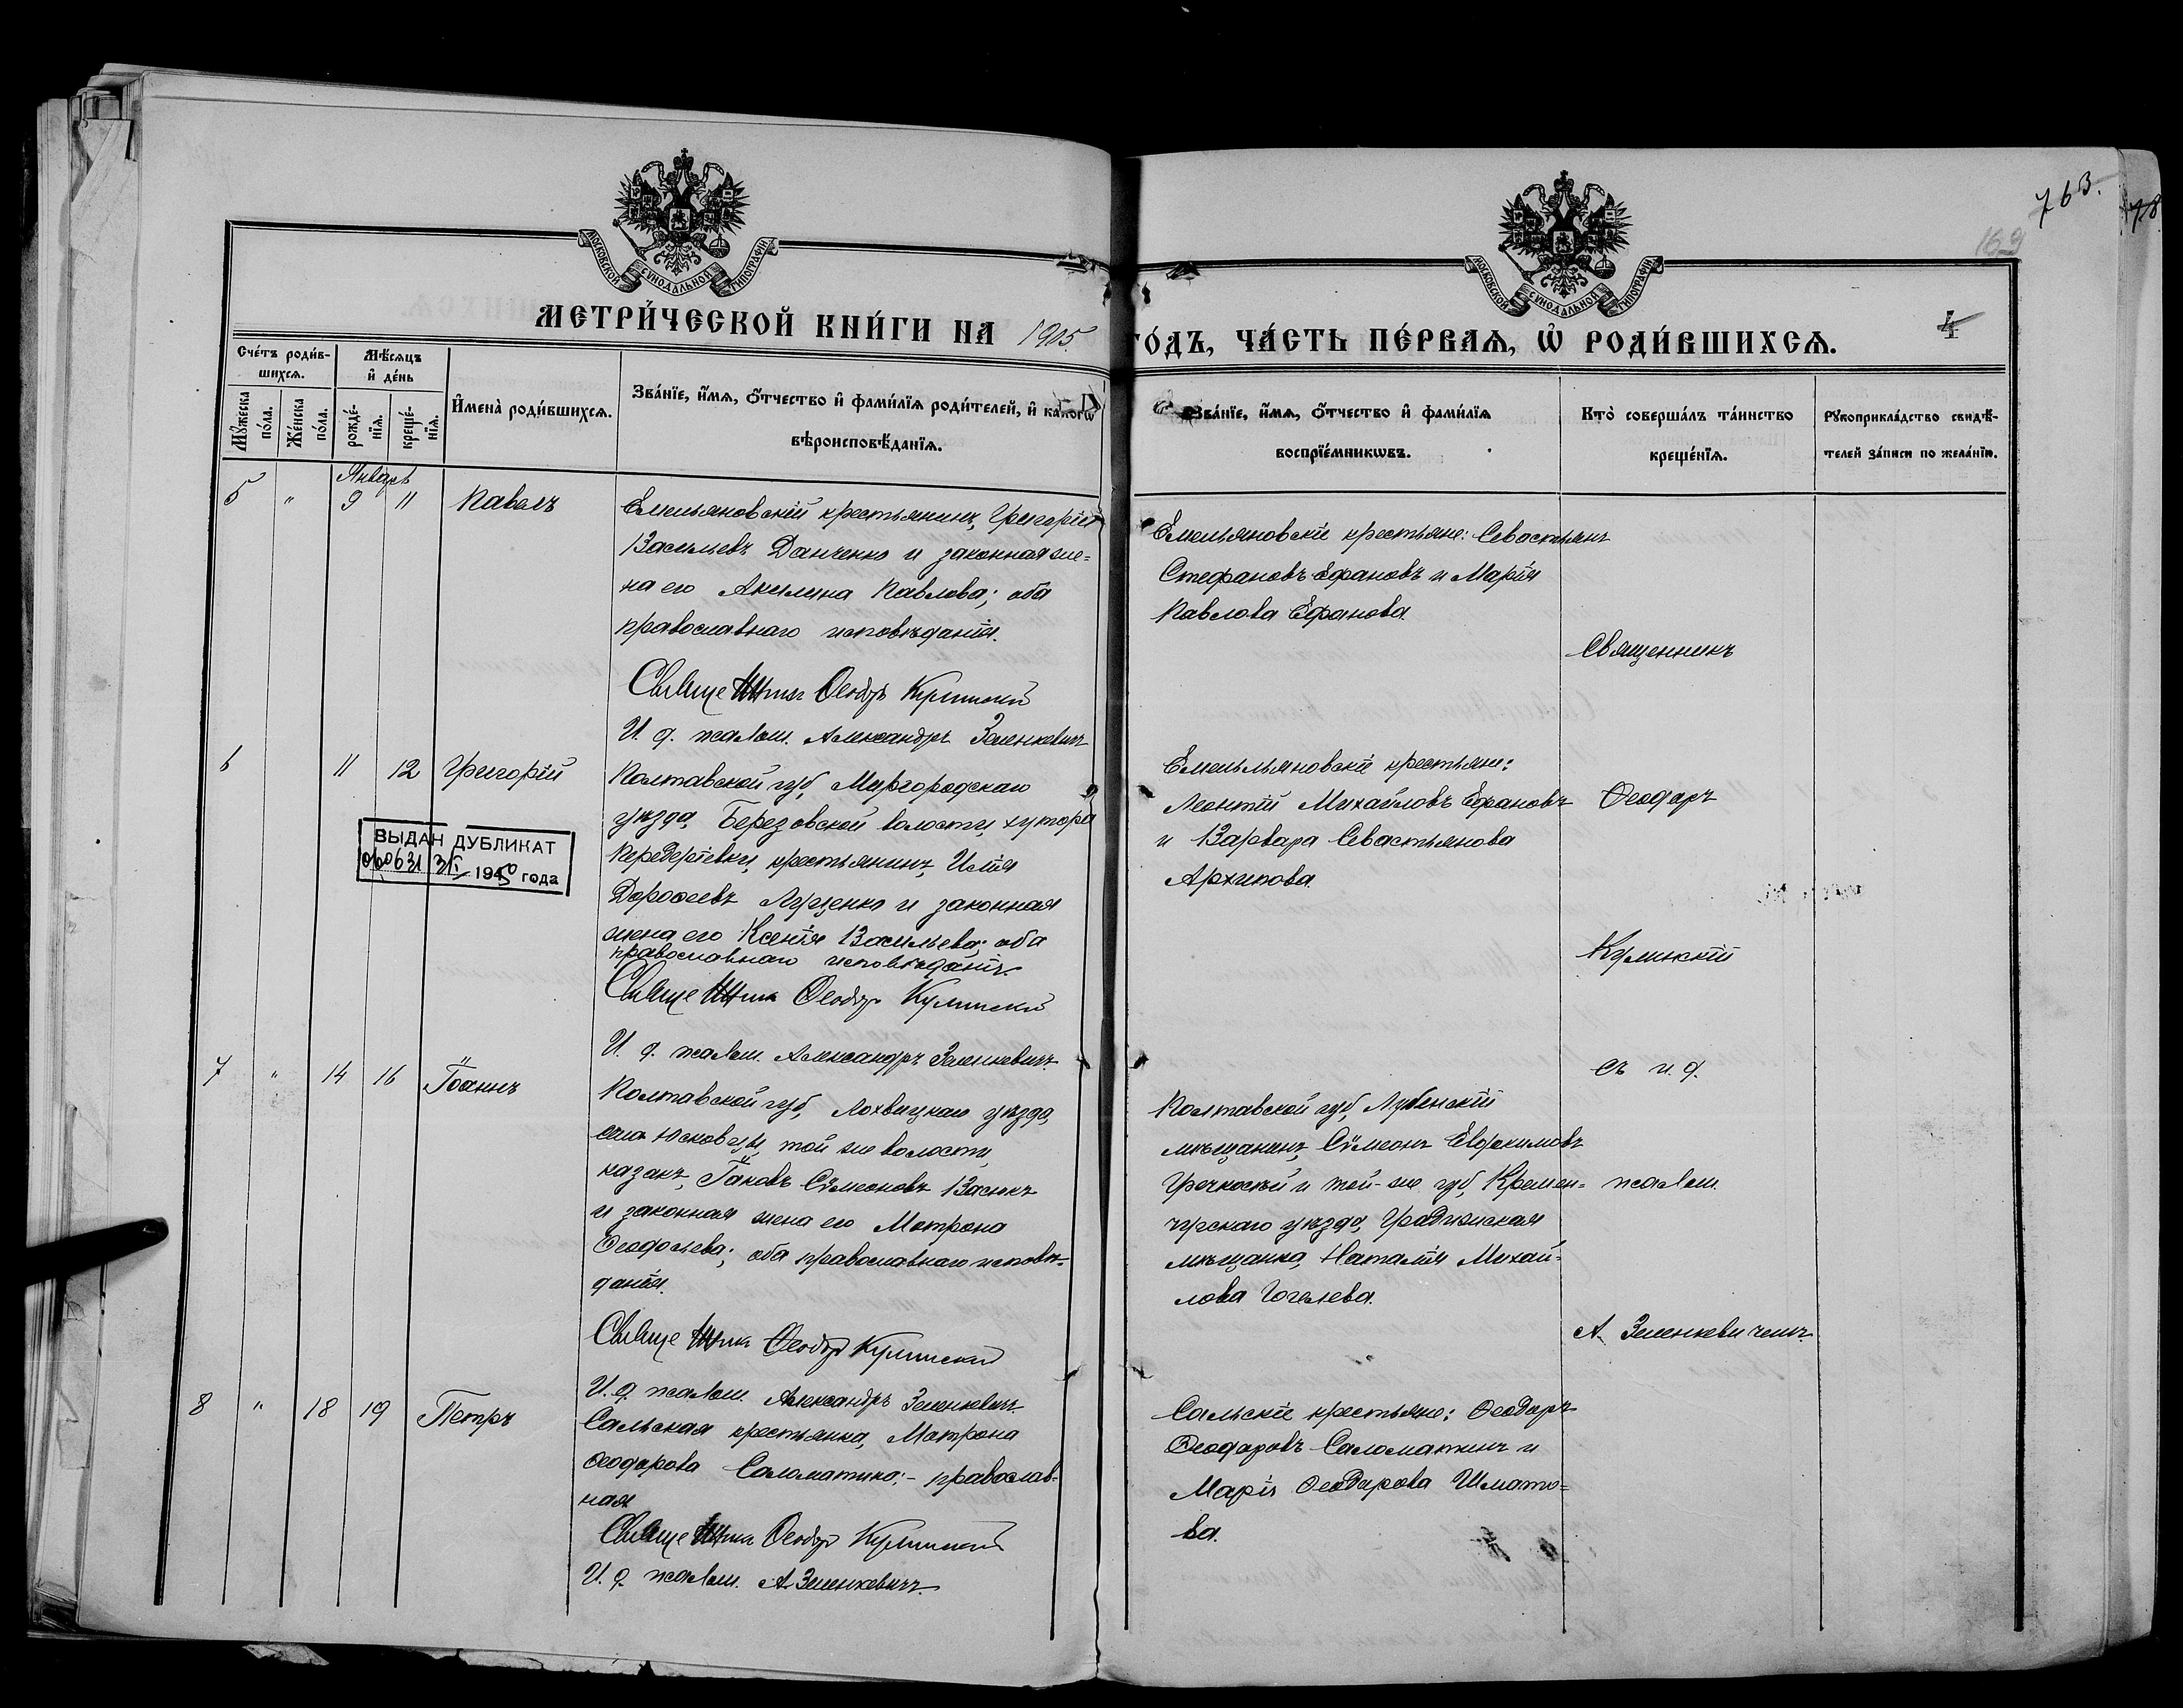 763.
78
169
4
МОСКОВСКОЙ СѴНОДАЛЬНОЙ ТИПОГРАФІИ
МОСКОВСКОЙ СѴНОДАЛЬНОЙ ТИПОГРАФІИ
МЕТРИ́ЧЕСКОЙ КНИ́ГИ НА 1905. ГО́ДЪ, ЧА́СТЬ ПЕ́РВАѦ, Ѡ҆ РОДИ́ВШИХСѦ.
Сче́тъ роди́в-
шихсѧ.
Мꙋ́жеска по́ла.
Же́нска по́ла.
Мѣ́сѧцъ и҆ де́нь
рожде́-нїѧ.
креще́-нїѧ.
И҆мена̀ роди́вшихсѧ.
Зва́нїе, и҆́мѧ, ѻ҆́тчество и҆ фами́лїѧ роди́телей, и҆ како́гѡ
вѣроисповѣ́данїѧ.
Зва́нїе, и҆́мѧ, ѻ҆́тчество и҆ фами́лїѧ
воспрїе́мникѡвъ.
Кто̀ соверша́лъ та́инство
креще́нїѧ.
Рꙋкоприкла́дство свидѣ́-
телей за́писи по жела́нїю.
Январь
5 " 9 11 Павелъ
Емельяновскій крестьянинъ, Григорій
Васильевъ Данченко и законная же-
на его Акилина Павлова; оба
православнаго исповѣданія.
Священникъ Ѳеодоръ Кулинскій
И. д. псалом. Александръ Зеленкевичъ
Емельяновскіе крестьяне: Севастьянъ
Стефановъ Ефановъ и Марія
Павлова Ефанова.
Священникъ
6 11 12 Григорій
ВЫДАН ДУБЛИКАТ
1950 года
Полтавской губ, Миргородскаго
уѣзда, Березовской волости, хутора
крестьянинъ, Илія
Дороѳеевъ Луценко и законная
жена его Ксенія Васильева; оба
православнаго исповѣданія.
Священникъ Ѳеодоръ Кулинскій
И. д. псалом. Александръ Зеленкевичъ
Емельльяновскіе крестьяне:
Леонтій Михайловъ Ефановъ
и Варвара Севастьянова
Архипова.
Ѳеодоръ
Кулинскій
7 " 14 16 Іоаннъ
Полтавской губ, Лохвицкаго уѣзда,
села Юсковцы, той же волости,
казакъ, Іаковъ Сѵмеоновъ Васюкъ
и законная жена его Мотрона
Ѳеодосьева; оба православнаго исповѣ-
данія.
Священникъ Ѳеодоръ Кулинскій
И. д. псалом. Александръ Зеленкевичъ
съ и. д.
Полтавской губ, Лубенскій
мѣщанинъ, Сѵмеонъ Евфимовъ
Гречкосѣй и той-же губ, Кремен-
чугскаго уѣзда, Градижская
мѣщанка, Наталія Михай-
лова Гогелева.
псалом.
А. Зеленкевичемъ.
8 " 18 19 Петръ
Сальская крестьянка, Матрона
Ѳеодорова Саломатина; - православ-
ная
Священникъ Ѳеодоръ Кулинскій
И. д. псалом. А. Зеленкевичъ.
Сальскіе крестьяне: Ѳеодоръ
Ѳеодоровъ Саломатинъ и
Марія Ѳеодорова Шмато-
ва.